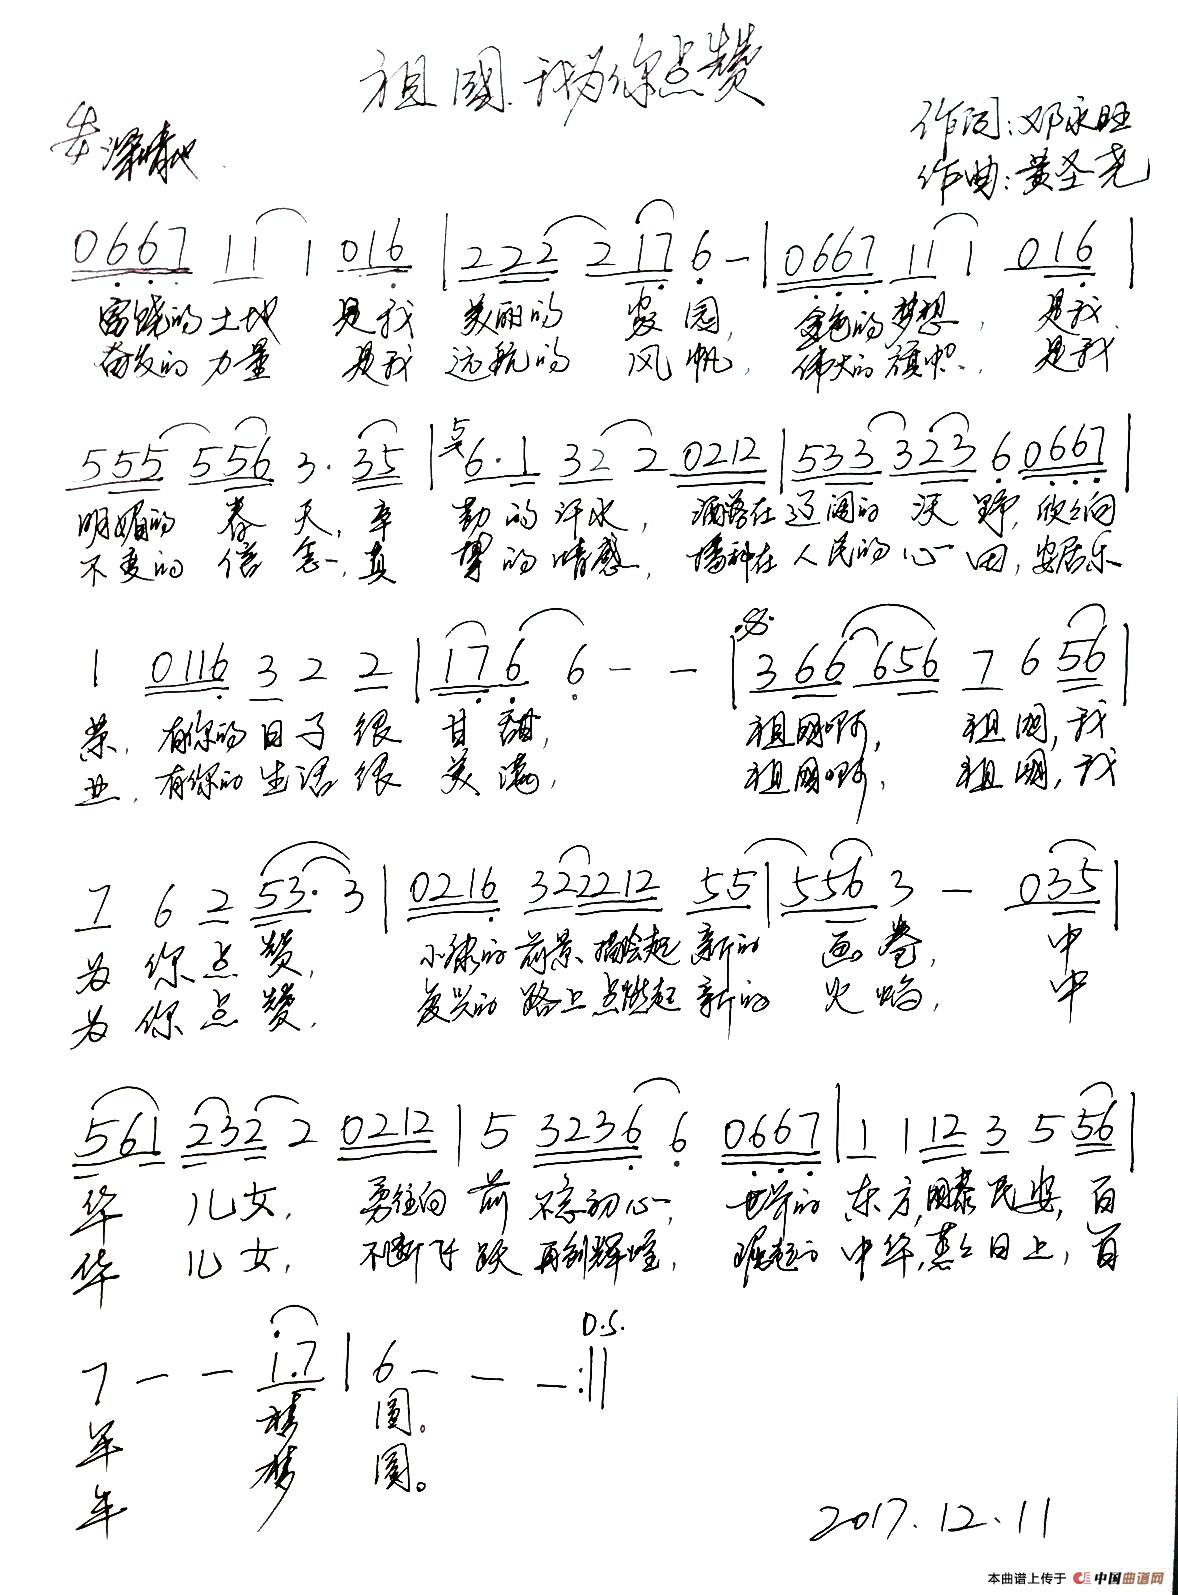 祖國,我为你点赞
深情地
作词:邓永旺
作曲:黄圣尧
0667 11 1 016 | 222 2 17 6 - | 0667 11 1 016 |
富饶的土地 是我 美丽的 家园, 金色的梦想, 是我
奋发的力量 是我 远航的 风帆, 伟大的旗帜, 是我
555 556 3· 35 | 5 6·1 32 2 0212 | 533 323 6 0667 |
明媚的 春天, 辛 勤的汗水, 洒落在辽阔的 沃野, 欣欣向
不变的 信念, 真 挚的情感, 播种在人民的心田, 安居乐
1 0116 3 2 2 | 176 6 - - | 366 656 7 6 56 |
荣, 有你的日子很 甘甜, 祖国啊, 祖国, 我
业, 有你的生活很 美满, 祖国啊, 祖國, 我
7 6 2 53· 3 | 0216 322212 55 | 556 3 - 035 |
为你点赞, 小康的前景描绘起新的 画卷, 中
为你点赞, 复兴的路上点燃起新的 火焰, 中
561 232 2 0212 | 5 3236 6 0667 | 1 1 12 3 5 56 |
华 儿女, 勇往向前 不忘初心, 世界的东方,国泰民安, 百
华 儿女, 不断飞跃 再创辉煌, 崛起的中华,蒸蒸日上, 百
7 - - 1·7 | 6 - - - :|| D.S.
年 梦 圆。
年 梦 圆。
2017.12.11
本曲谱上传于 中国曲谱网